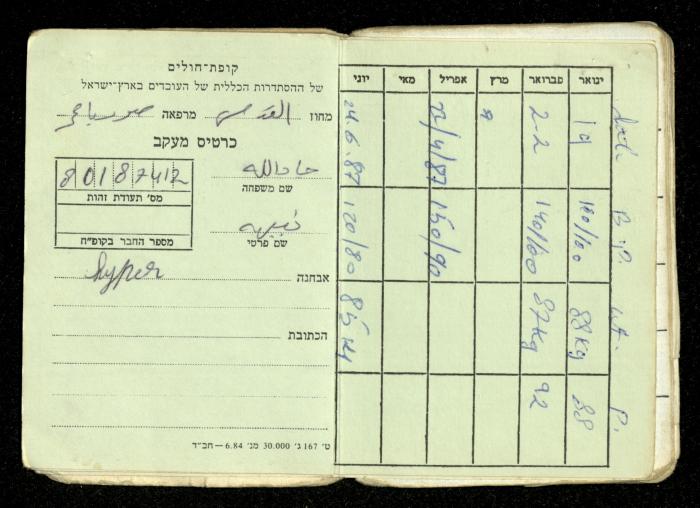 קופת-חולים
של ההסתדרות הכללית של העובדים בארץ-ישראל
מחוז القدس מרפאה
כרטיס מעקב
80187412
מס' תעודת זהות
מספר החבר בקופ"ח
שם משפחה
שם פרטי
אבחנה hyper
הכתובת
ט' 167 ג' 30.000 מנ' 6.84 — חב"ד
ינואר פברואר מרץ אפריל מאי יוני
2-2 22/4/87 24.6.87
B.P. 140/100 150/90 120/80
wt. 88 Kg 87 Kg
P. 88 92